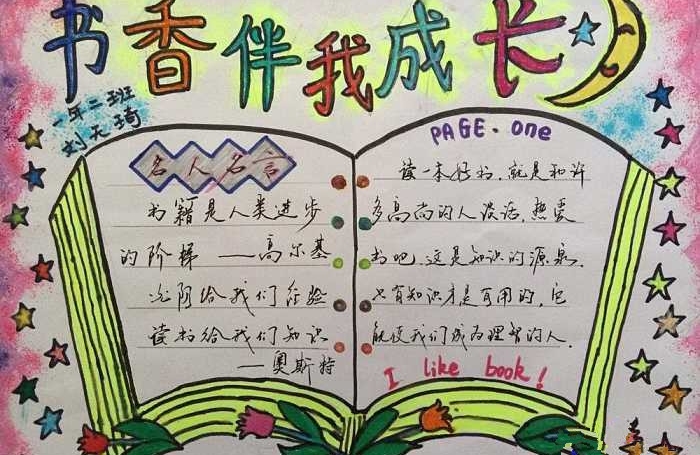 书香伴我成长
一年二班
刘天琦
名人名言
书籍是人类进步
的阶梯——高尔基
光阴给我们经验
读书给我们知识
——奥斯特
PAGE·One
读一本好书,就是和许
多高尚的人谈话,热爱
书吧,这是知识的源泉,
只有知识才是有用的,它
能使我们成为理智的人.
I like book!